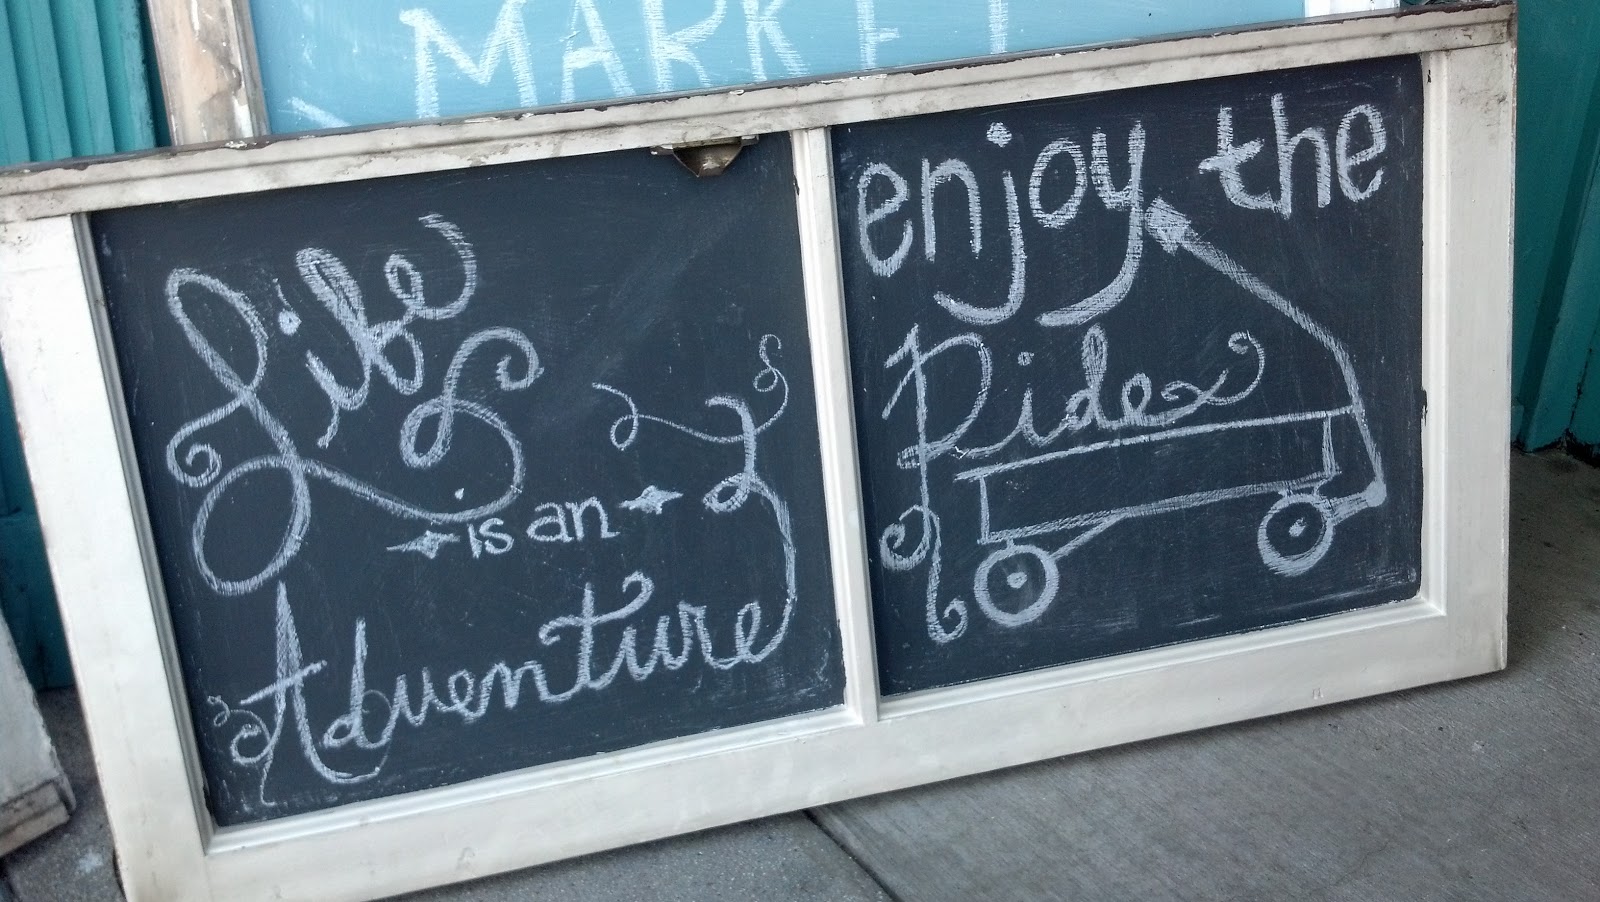 MARKET
Life
is an
Adventure
enjoy the
Ride